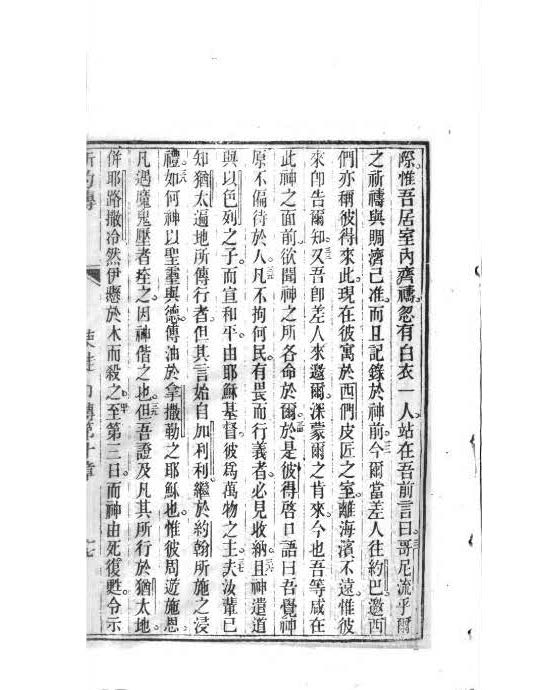 際惟吾居室內齊禱忽有白衣一人站在吾前言曰哥尼流乎爾
之祈禱與賙濟己准而且記錄於神前今爾當差人往約巴邀西
們亦稱彼得來此現在彼寓於西們皮匠之室離海濱不遠惟彼
來即告爾知又吾即差人來邀爾深蒙爾之肯來今也吾等咸在
此神之面前欲聞神之所各命於爾於是彼得啓口語曰吾覺神
原不偏待於人凡不拘何民有畏而行義者必見收納且神遣道
與以色列之子而宣和平由耶穌基督彼爲萬物之主夫汝輩已
知猶太遍地所傳行者但其言始自加利利繼於約翰所施之浸
禮如何神以聖靈與德傅油於拿撒勒之耶穌也惟彼周遊施恩
凡遇魔鬼壓者痊之因神偕之也但吾證及凡其所行於猶太地
併耶路撒冷然伊懸於木而殺之至第三日而神由死復甦令示
傳第十章